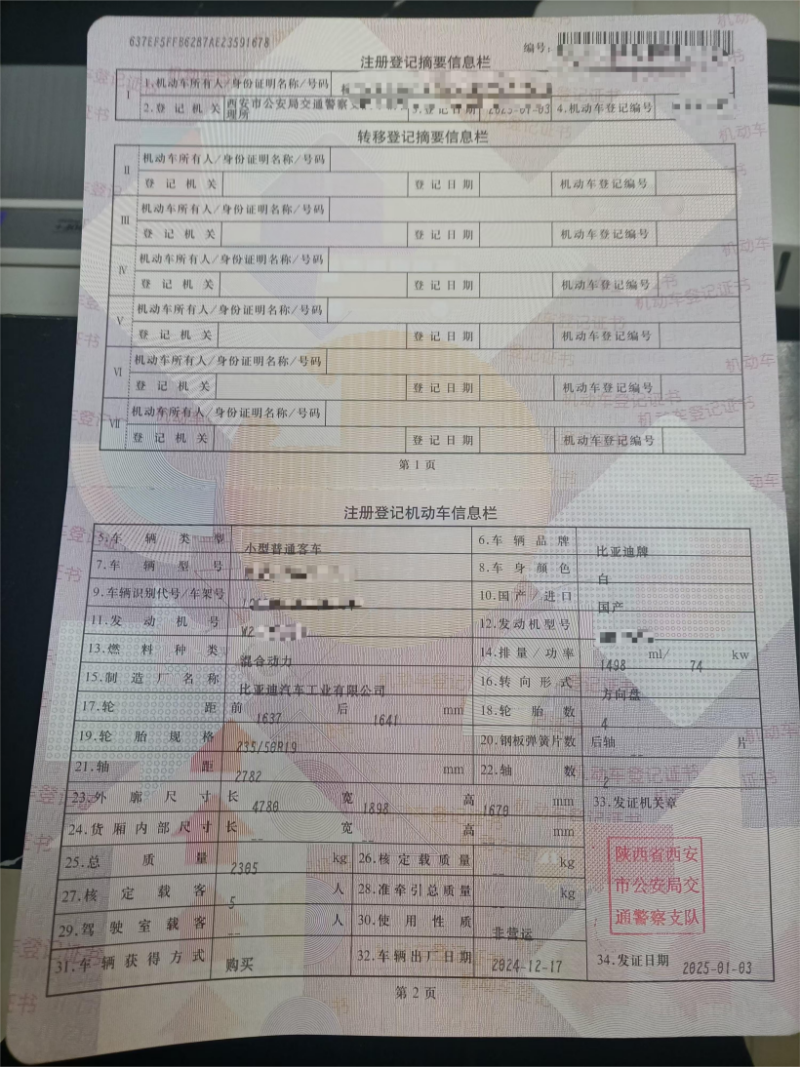 637EF5FFB62B7AE23591678
编号:
注册登记摘要信息栏
I 1.机动车所有人/身份证明名称/号码
2.登记机关 西安市公安局交通警察支 理所 3.登记日期 2025-01-03 4.机动车登记编号
转移登记摘要信息栏
II 机动车所有人/身份证明名称/号码
登记机关 登记日期 机动车登记编号
III 机动车所有人/身份证明名称/号码
登记机关 登记日期 机动车登记编号
IV 机动车所有人/身份证明名称/号码
登记机关 登记日期 机动车登记编号
V 机动车所有人/身份证明名称/号码
登记机关 登记日期 机动车登记编号
VI 机动车所有人/身份证明名称/号码
登记机关 登记日期 机动车登记编号
VII 机动车所有人/身份证明名称/号码
登记机关 登记日期 机动车登记编号
第1页
注册登记机动车信息栏
5.车辆类型 小型普通客车 6.车辆品牌 比亚迪牌
7.车辆型号 8.车身颜色 白
9.车辆识别代号/车架号 10.国产/进口 国产
11.发动机号 12.发动机型号
13.燃料种类 混合动力 14.排量/功率 1498 ml/ 74 kw
15.制造厂名称 比亚迪汽车工业有限公司 16.转向形式 方向盘
17.轮距 前 1637 后 1641 mm 18.轮胎数 4
19.轮胎规格 235/50R19 20.钢板弹簧片数 后轴 -- 片
21.轴距 2782 mm 22.轴数 2
23.外廓尺寸 长 4780 宽 1898 高 1670 mm 33.发证机关章
24.货厢内部尺寸 长 -- 宽 -- 高 -- mm
25.总质量 2305 kg 26.核定载质量 -- kg
27.核定载客 5 人 28.准牵引总质量 -- kg
29.驾驶室载客 -- 人 30.使用性质 非营运
31.车辆获得方式 购买 32.车辆出厂日期 2024-12-17 34.发证日期 2025-01-03
陕西省西安
市公安局交
通警察支队
第2页